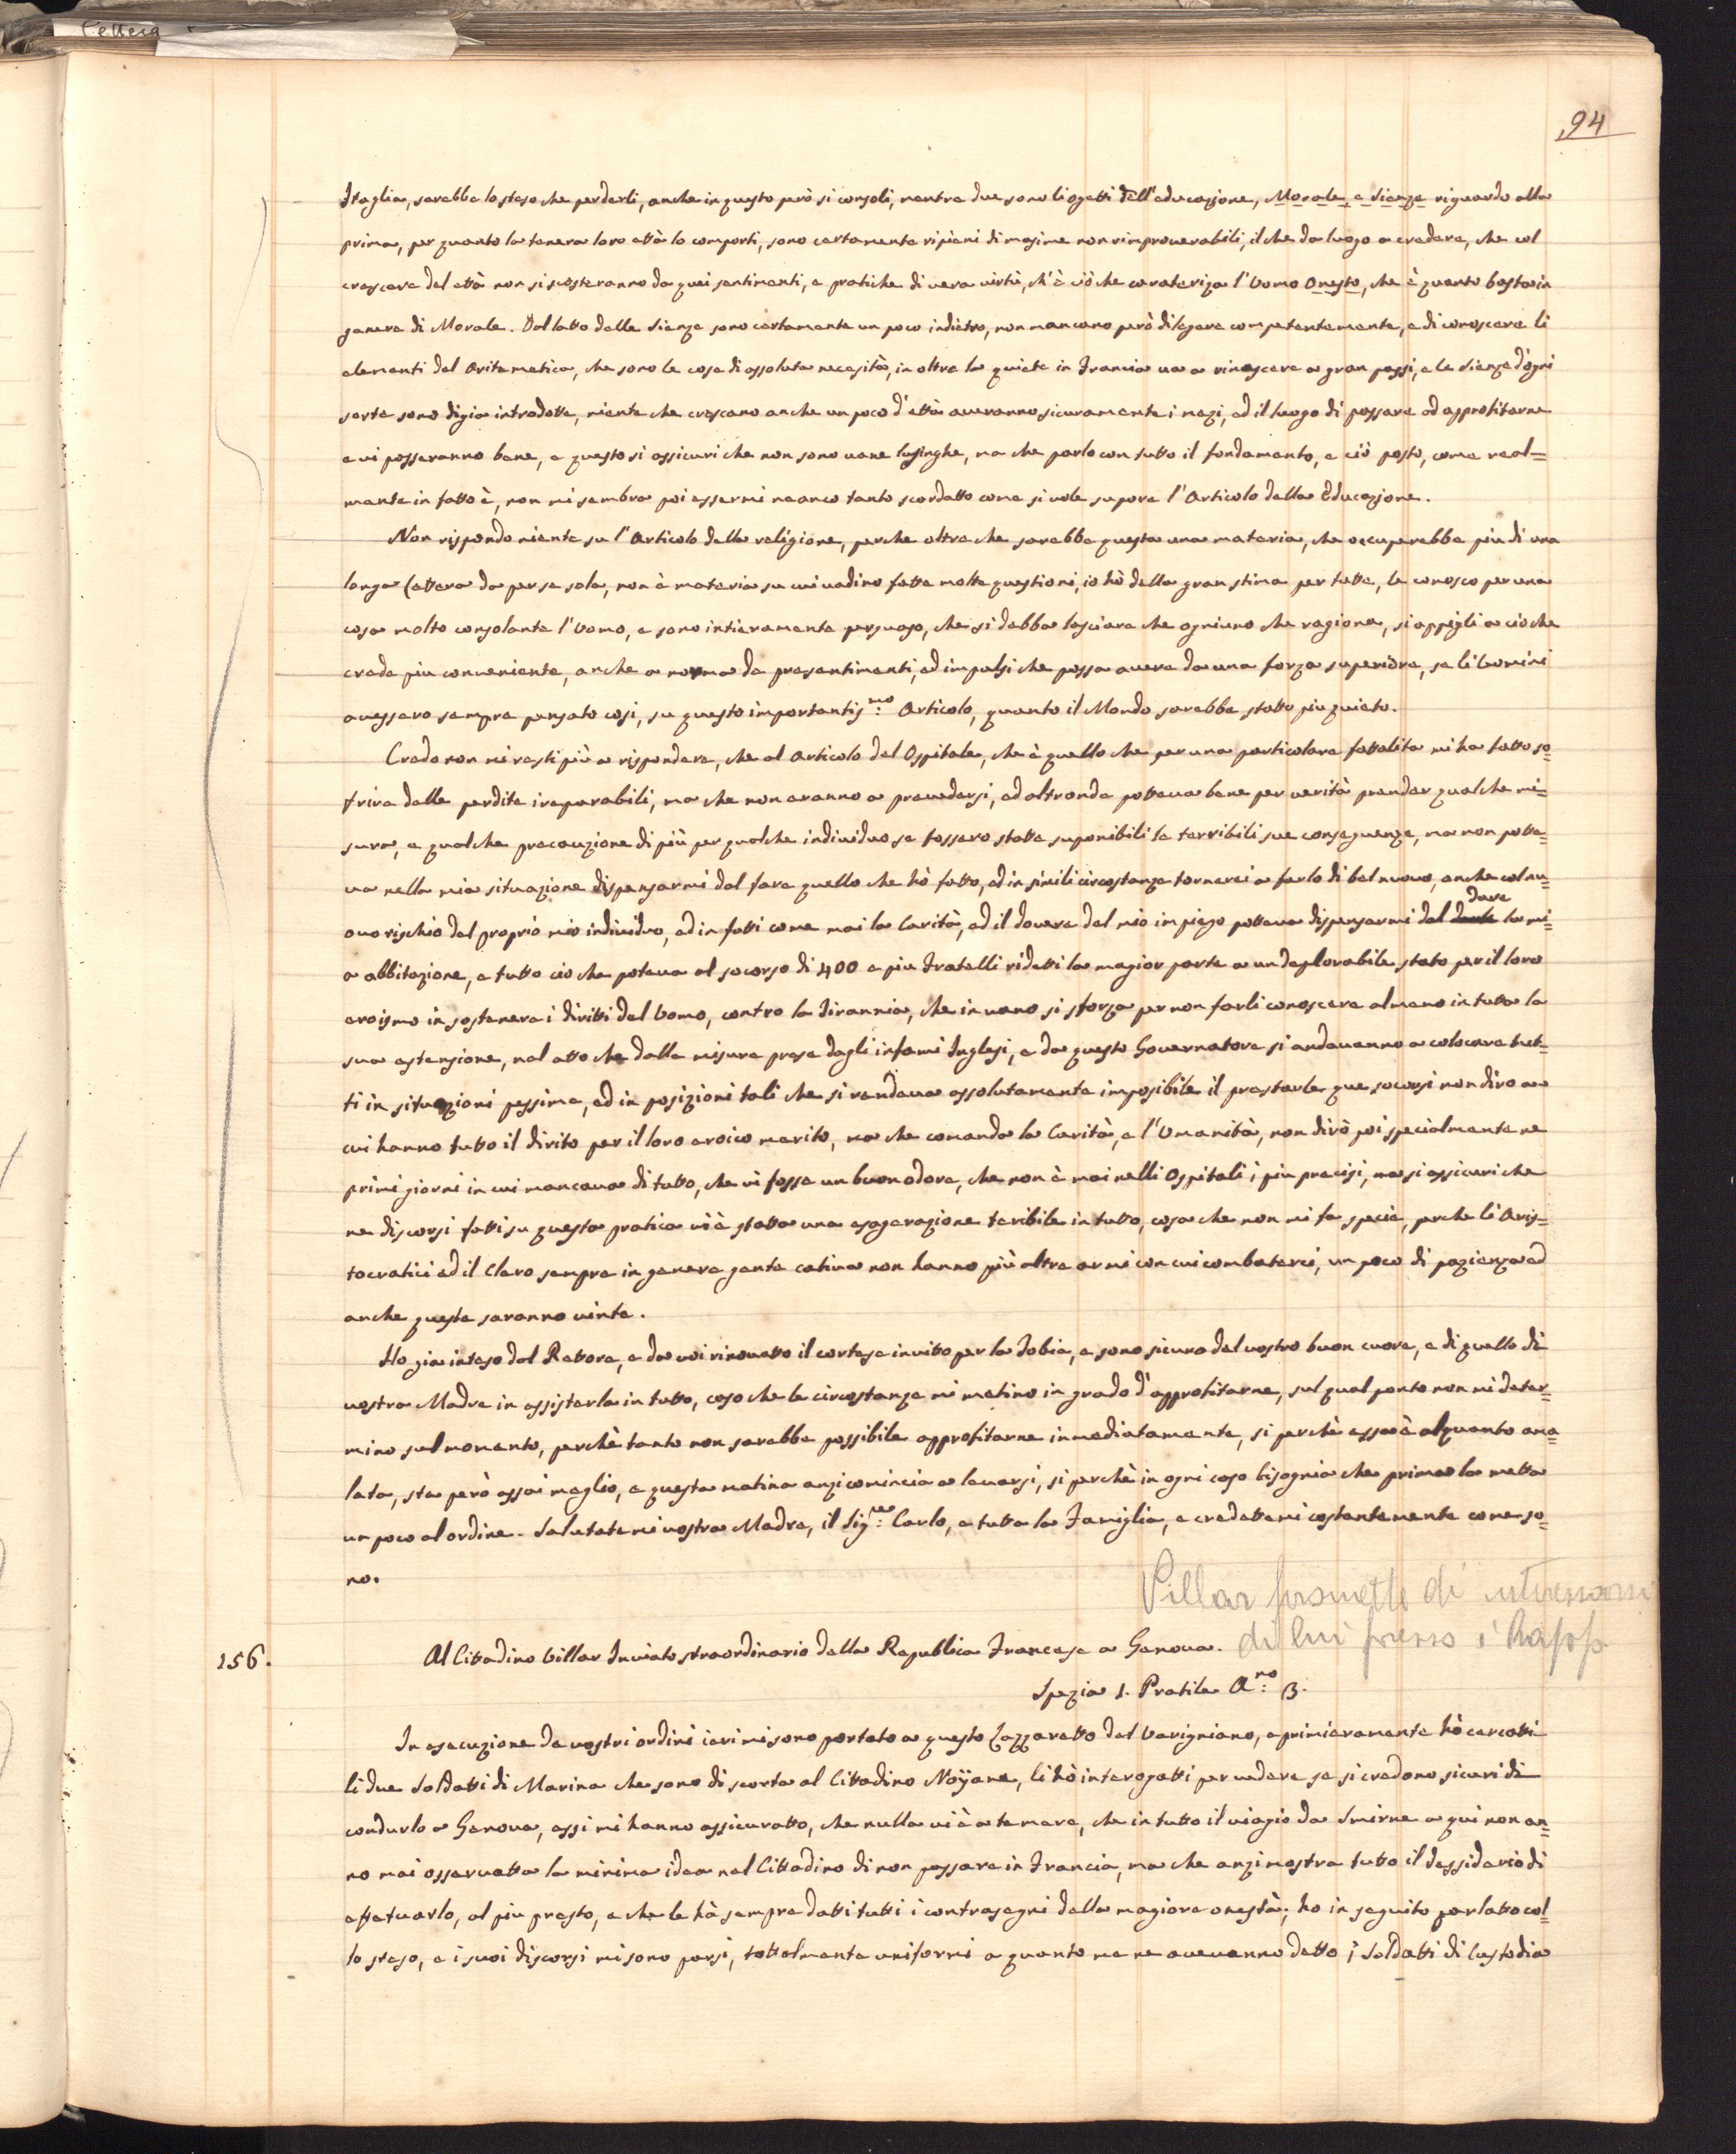 Lettera
94
Itaglia, sarebbe lo steso che perderli, anche in questo però si consoli, mentre due sono li ogetti dell'educazione, Morale, e sienze riguardo alla
prima, per quanto la tenera loro ettà lo comporti, sono certamente ripieni di masime non rimproverabili, il che da luogo a credere, che col
crescere del ettà non si scosteranno da quei sentimenti, e pratiche di vera virtù, ch'è ciò che carateriza l'Uomo Onesto, che è quanto basta in
genere di Morale. Dal latto delle sienze sono certamente un poco indietro, non mancano però di legere competentemente, e di conoscere li
elementi del Aritematica, che sono le cose di assoluta necesità, in oltre la quiete in Francia va a rinascere a gran passi, e le sienze d'ogni
sorte sono digia introdotte, niente che crescano anche un poco d'ettà averanno sicuramente i mezi, ed il luogo di passare ad approfitarne
e vi passeranno bene, e questo si assicuri che non sono vane lusinghe, ma che parlo con tutto il fondamento, e ciò posto, come real=
mente in fatto è, non mi sembra poi essermi neanco tanto scordatto come si vole supore l'Articolo della Educazione.
Non rispondo niente su l'Articolo della religione, perche oltre che sarebbe questa una materia, che occuperebbe piu di una
longa lettera da per se sola, non è materia su cui vadino fatte molte questioni, io hò della gran stima per tutte, le conosco per una
cosa molto consolante l'Uomo, e sono intieramente persuaso, che si debba lasciare che ogniuno che ragiona, si appigli a cio che
crede piu conveniente, anche a norma de presentimenti, ed impulsi che possa avere da una forza superiore, se li Uomini
avessero sempre pensato cosi, su questo importantis:mo Articolo, quanto il Mondo sarebbe statto piu quieto.
Credo non mi resti più a rispondere, che al Articolo del Ospitale, che è quello che per una particolare fattalita mi ha fatto so=
frire delle perdite ireparabili, ma che non eranno a prevedersi, ed altronde potteva bene per verità prender qualche mi=
sura, e qualche precauzione di più per qualche individuo se fossero statte suponibili le terribili sue conseguenze, ma non potte=
va nella mia situazione dispensarmi dal fare quello che hò fatto, ed in simili circostanze tornerei a farlo di bel nuovo, anche col nu=
ovo rischio del proprio mio individuo, ed in fatti come mai la Carità, ed il dovere del mio impiego potteva dispensarmi dal dare la mi=
a abbitazione, e tutto cio che poteva al socorso di 400 e piu Fratelli ridotti la magior parte a un deplorabile stato per il loro
eroismo in sostenere i diritti del Uomo, contro la Tirannia, che in vano si sforza per non farli conoscere almeno in tutta la
sua estensione, nel atto che dalle misure prese dagli infami Inglesi, e da questo Governatore si andavanno a colocare tut=
ti in situazioni pessime, ed in posizioni tali che si rendeva assolutamente imposibile il prestarle que socorsi non diro a
cui hanno tutto il dirito per il loro eroico merito, ma che comanda la Carità, e l'Umanità, non dirò poi specialmente ne
primi giorni in cui mancava di tutto, che vi fosse un buon odore, che non è mai nelli Ospitali i piu precisi, ma si assicuri che
ne discorsi fatti su questa pratica vi è statta una esagerazione teribile in tutto, cosa che non mi fa specie, perche li Aris=
tocratici ed il Clero sempre in genere gente cativa non hanno più altre armi con cui combaterci, un poco di pazienza ed
anche queste saranno vinte.
Ho gia inteso dal Rettore, e da voi rinovatto il cortese invitto per la Tobia, e sono sicuro del vostro buon cuore, e di quello di
vostra Madre in assisterla in tutto, caso che le circostanze mi metino in grado d'approfitarne, sul qual ponto non mi deter=
mino sul momento, perchè tanto non sarebbe possibile approfitarne immediatamente, si perchè essa è alquanto ama=
lata, sta però assai meglio, e questa matina anzi comincia a levarsi, si perchè in ogni caso bisognia che prima la metta
un poco al ordine. Salutatemi vostra Madre, il Sig:re Carlo, e tutta la Famiglia, e credettemi costantemente come so=
no.
Villar promette di
di lui presso i Rapp
156.
Al Cittadino Villar Inviato straordinario della Republica Francese a Genova.
Spezia 1. Pratile A:no 3.
In esecuzione de vostri ordini ieri mi sono portato a questo Lazzaretto del Varigniano, e primieramente hò cercatti
li due Soldatti di Marina che sono di scorta al Cittadino Noÿane, li hò interogatti per vedere se si credono sicuri di
condurlo a Genova, essi mi hanno assicuratto, che nulla vi è a temere, che in tutto il viagio da Smirne a qui non an=
no mai osservatta la minima idea nel Cittadino di non passare in Francia, ma che anzi mostra tutto il dessiderio di
effetuarlo, al piu presto, e che le hà sempre datti tutti i contrasegni della magiore onestà; ho in seguito parlatto col=
lo steso, e i suoi discorsi mi sono parsi, tottalmente uniformi a quanto me ne avevanno detto i Soldatti di Custodia